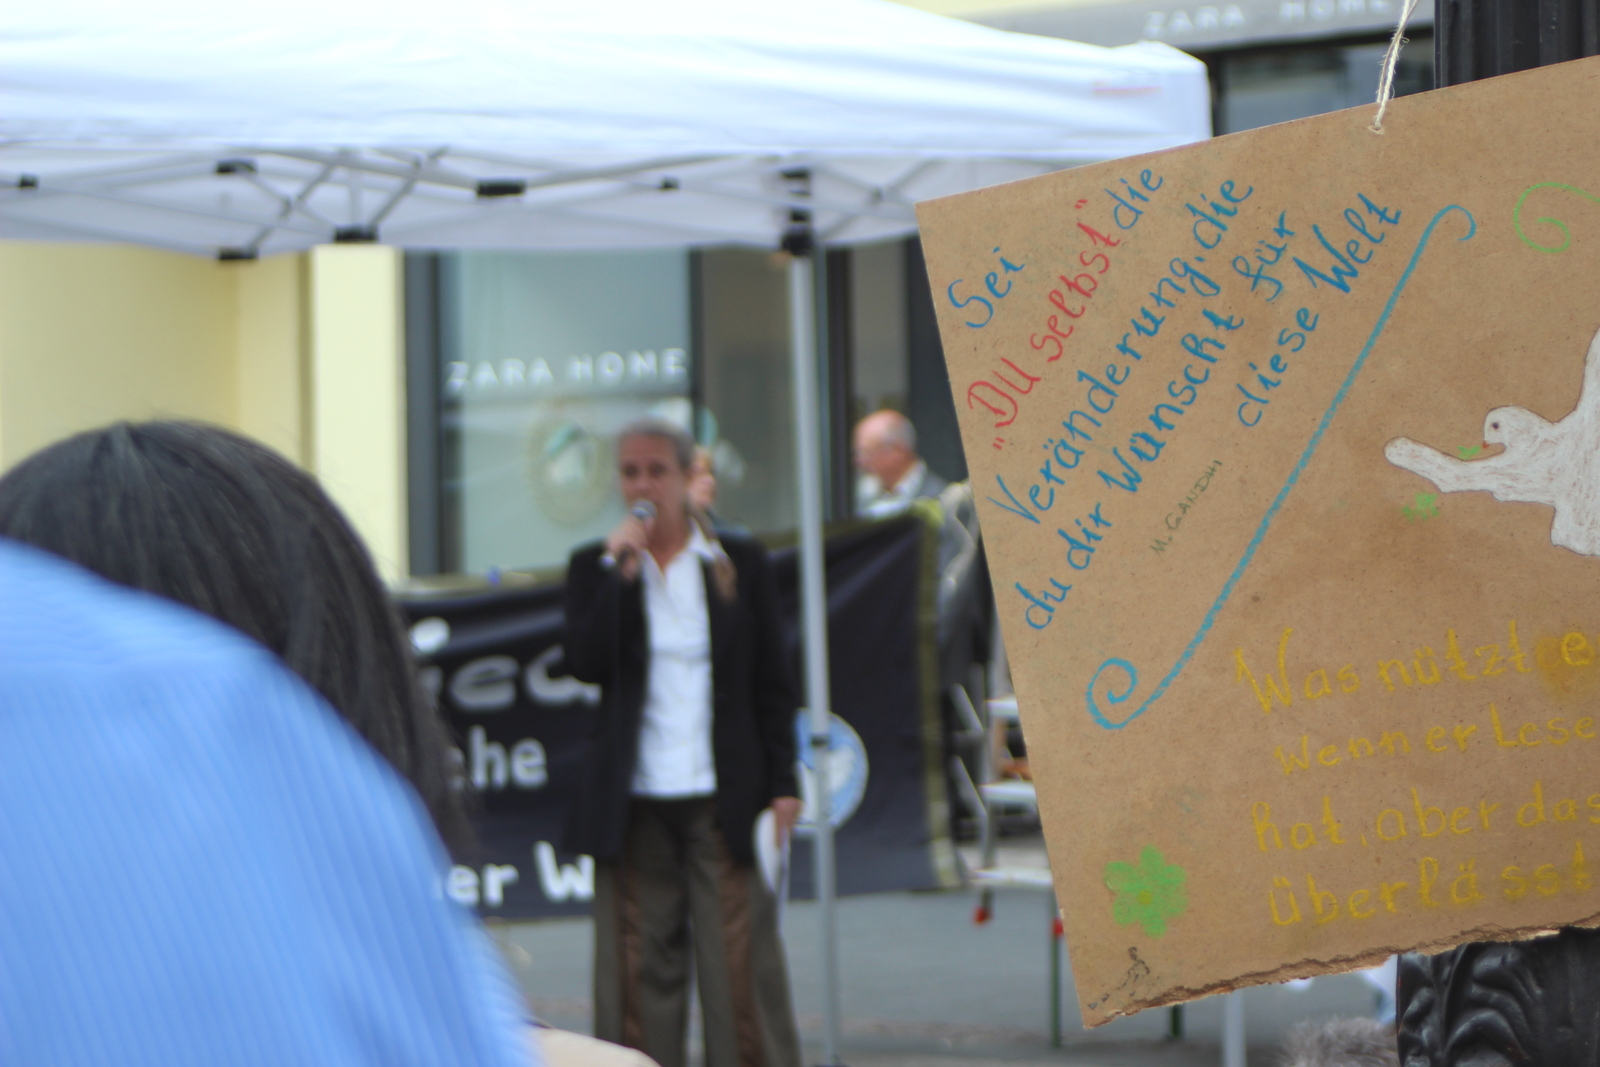 ZARA HOME
ZARA HOME
Sei
"DU selbst" die
Veränderung, die
du dir wünscht für
diese Welt
M. GANDHI
Was nützt e
wenn er Lese
hat, aber das
überlässt
che
er W